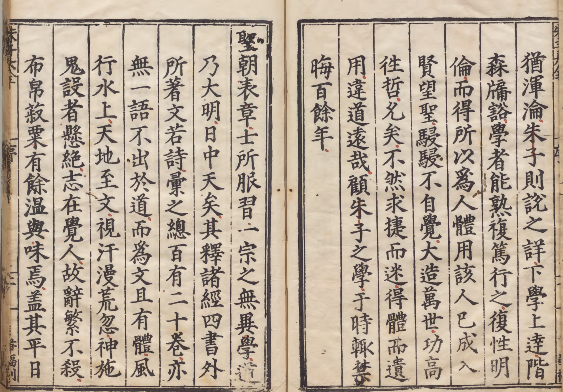 猶渾淪朱子則說之詳下學上達階
森牖豁學者能熟複篤行之復性明
倫而得所以為人體用該人已成入
賢望聖駸駸不自覺大造萬世功高
徃哲允矣不然求捷而迷得體而遺
用違道遠哉顧朱子之學于時輒禁
晦百餘年
聖朝表章士所服習一宗之無異學
乃大明日中天矣其釋諸經四書外
所著文若詩彙之總百有二十卷亦
無一語不出於道而為文且有體風
行水上天地至文視汗漫荒忽神施
鬼設者懸絕志在覺人故辭繁不殺
布帛菽粟有餘温與味焉盖其平日